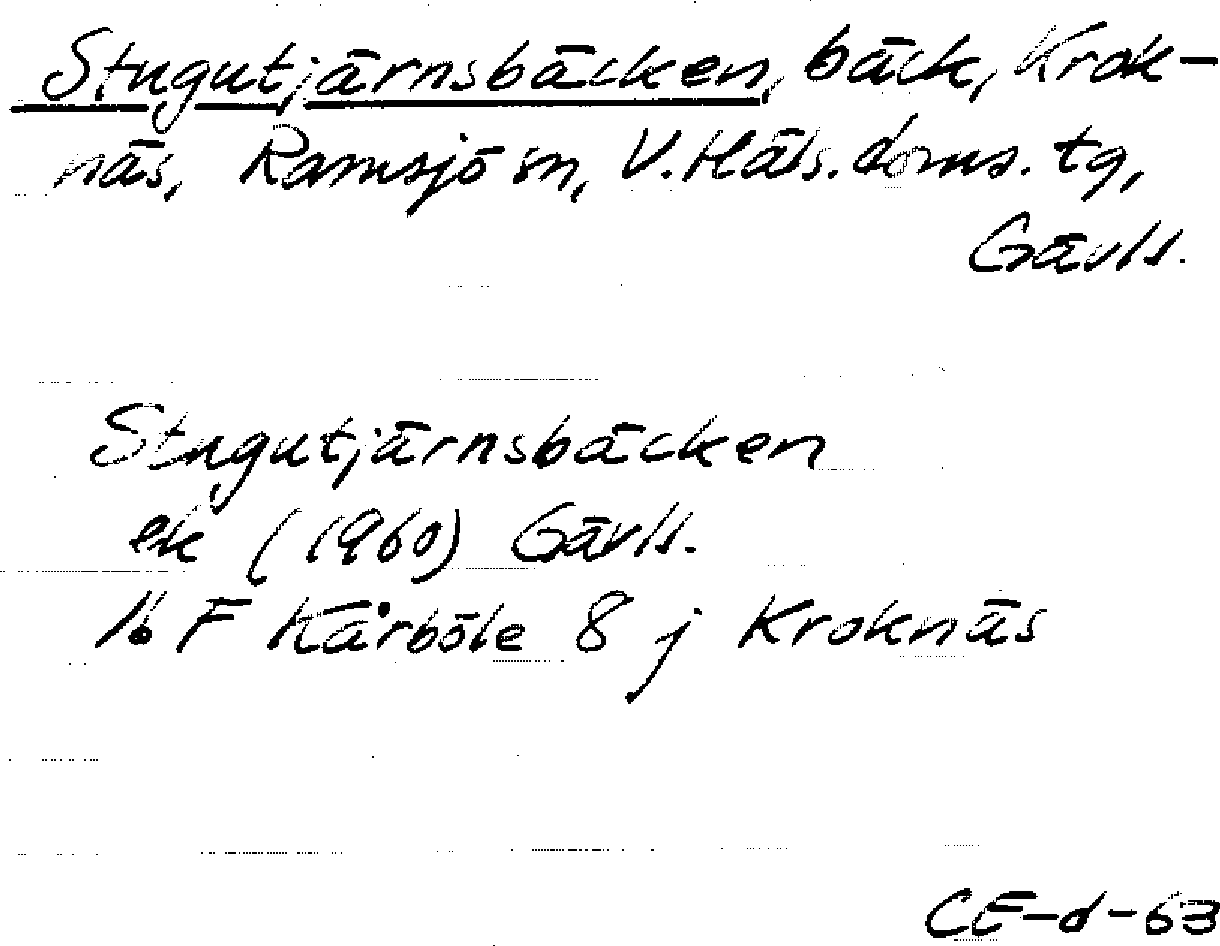 Stugutjärnsbäcken, bäck, Krok-
näs, Ramsjö sn, V. Häls. doms. tg,
Gävls.
Stugutjärnsbäcken
ek (1960) Gävls.
16 F Kårböle 8 j Kroknäs
CE-d-63